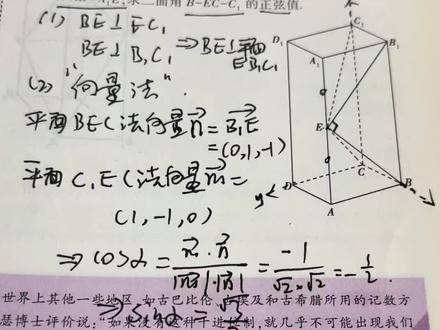 A₁E，求二面角 B-EC-C₁ 的正弦值.
(1) BE⊥EC₁
BE⊥B₁C₁ ⇒BE⊥平面
EB₁C₁
(2) "向量法"
平面BEC法向量n⃗=B₁E⃗
=(0,1,-1)
平面C₁EC法向量m⃗=
(1,-1,0)
⇒cosα=n⃗·n⃗/|m⃗|·|n⃗|=-1/√2×√2=-1/2
⇒sinα=√3/2
C₁
D₁
B₁
A₁
E
D
C
B
A
y
世界上其他一些地区，如古巴比伦、埃及和古希腊所用的记数方
瑟博士评价说："如果没有这种十进位制，就几乎不可能出现我们